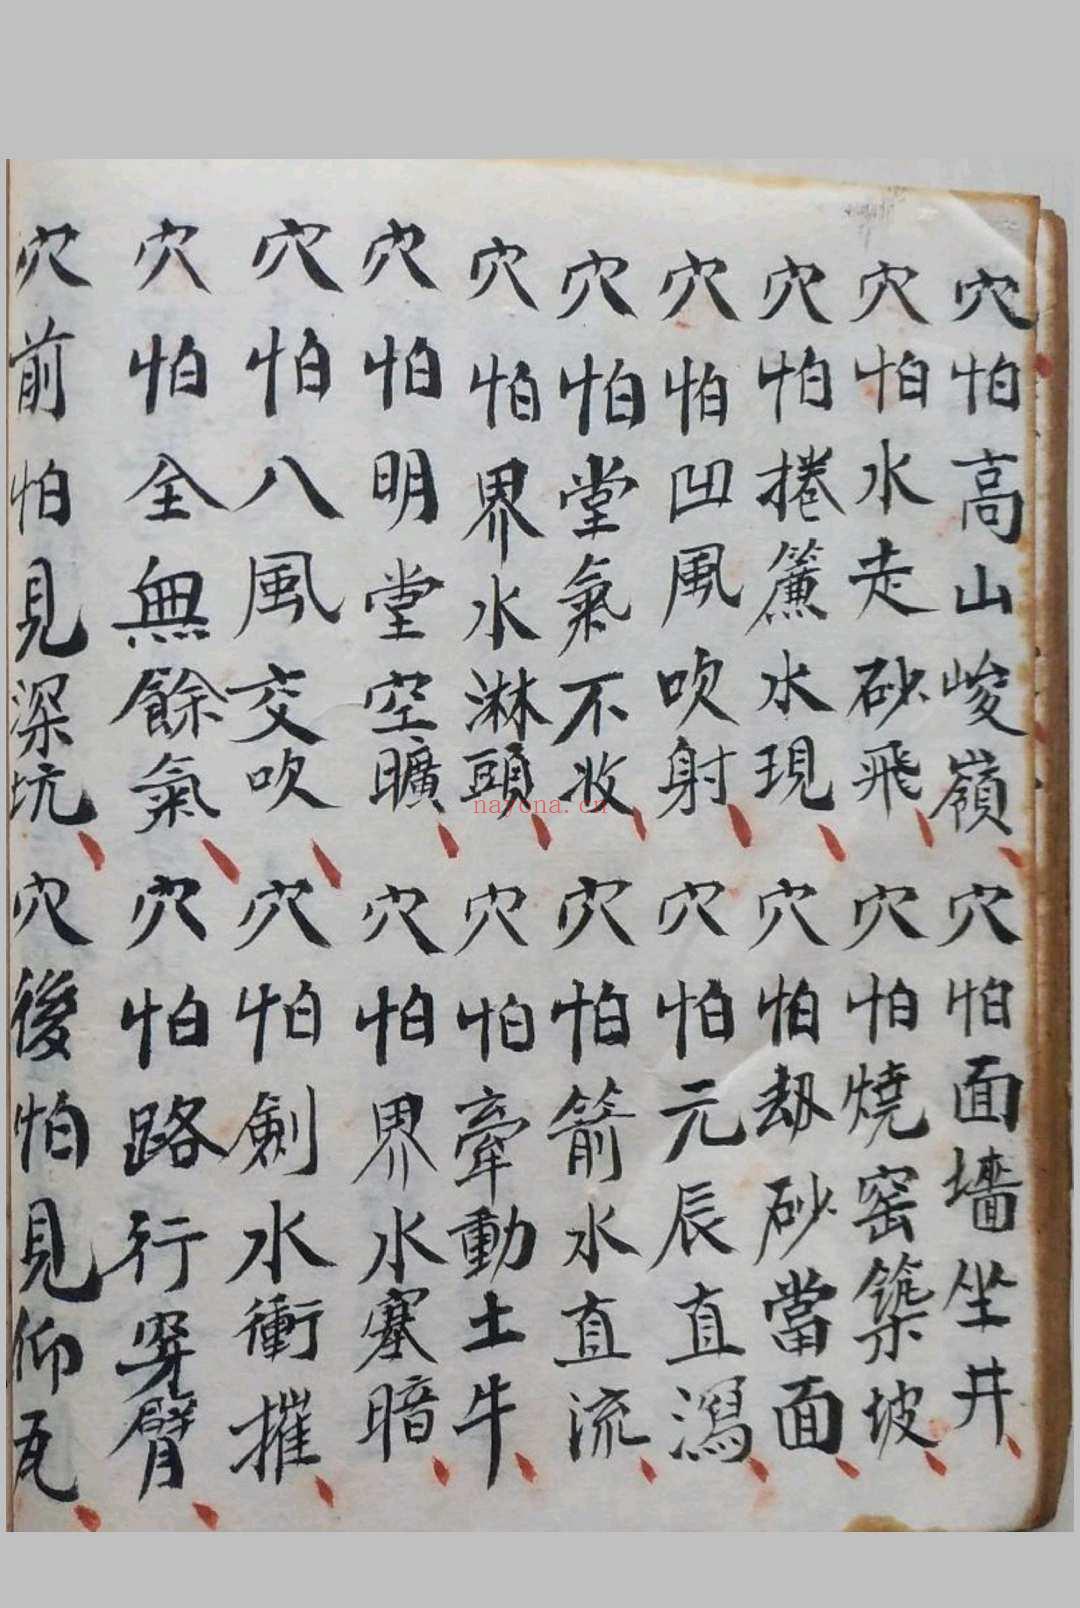 穴怕高山峻嶺穴怕面墻坐井
穴怕水走砂飛穴怕燒窑築坡
穴怕捲簾水現穴怕劫砂當面
穴怕凹風吹射穴怕元辰直瀉
穴怕堂氣不收穴怕箭水直流
穴怕界水淋頭穴怕牽動土牛
穴怕明堂空曠穴怕界水塞暗
穴怕八風交吹穴怕劍水衝摧
穴怕全無餘氣穴怕路行穿臂
穴前怕見深坑穴後怕見仰瓦
nayona.cn